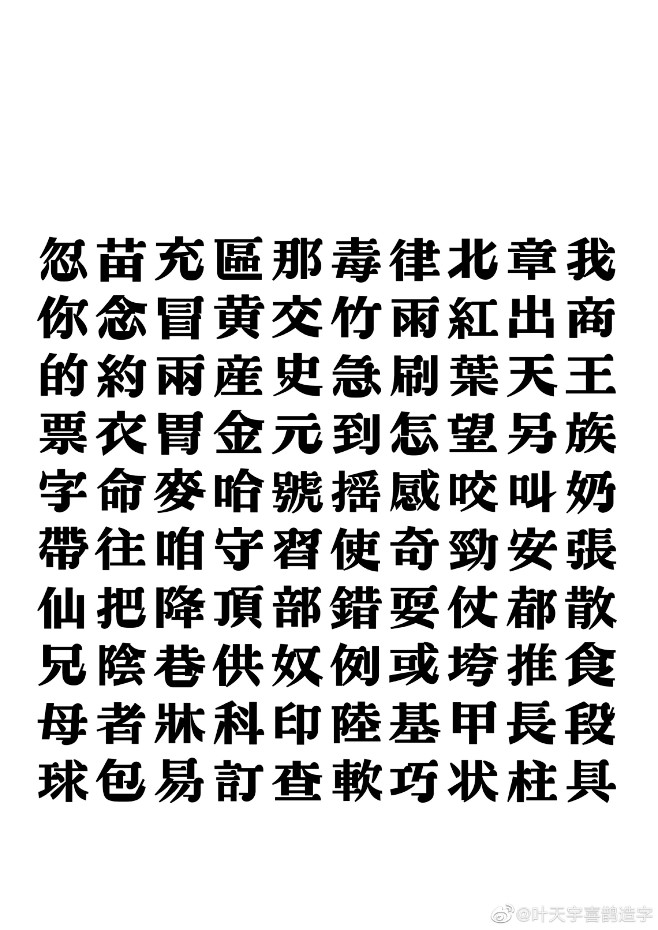 忽苗充區那毒律北章我
你念冒黄交竹雨紅出商
的約兩産史急刷葉天王
票衣胃金元到怎望另族
字命麥哈號摇感咬叫奶
帶往咱守習使奇勁安張
仙把降頂部錯耍仗都散
兄陰巷供奴例或垮推食
母者牀科印陸基甲長段
球包易訂查軟巧状柱具
@叶天宇喜鹊造字